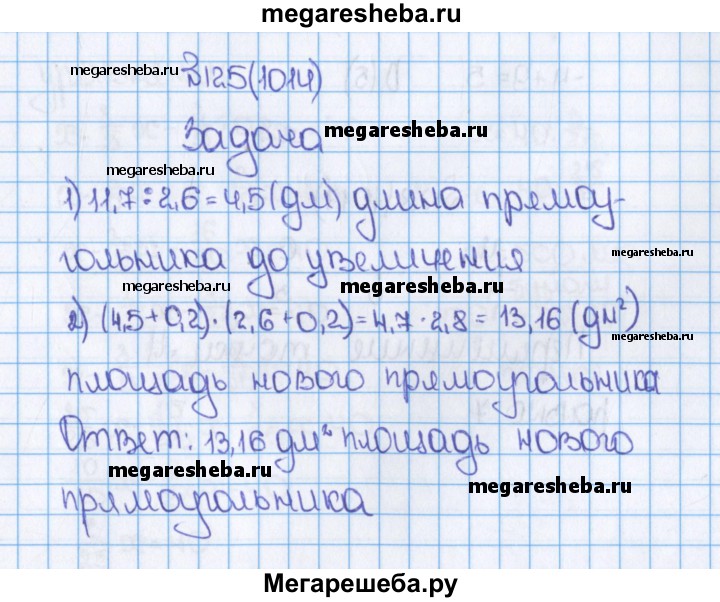 megaresheba.ru
megaresheba.ru №125(1014)
Задача megaresheba.ru
megaresheba.ru
1) 11,7÷2,6=4,5(дм) длина прямоу-
гольника до увеличения megaresheba.ru
megaresheba.ru megaresheba.ru
2) (4,5+0,2)·(2,6+0,2)=4,7·2,8=13,16(дм²)
megaresheba.ru
площадь нового прямоугольника
Ответ: 13,16 дм² площадь нового
megaresheba.ru megaresheba.ru
прямоугольника
Мегарешеба.ру